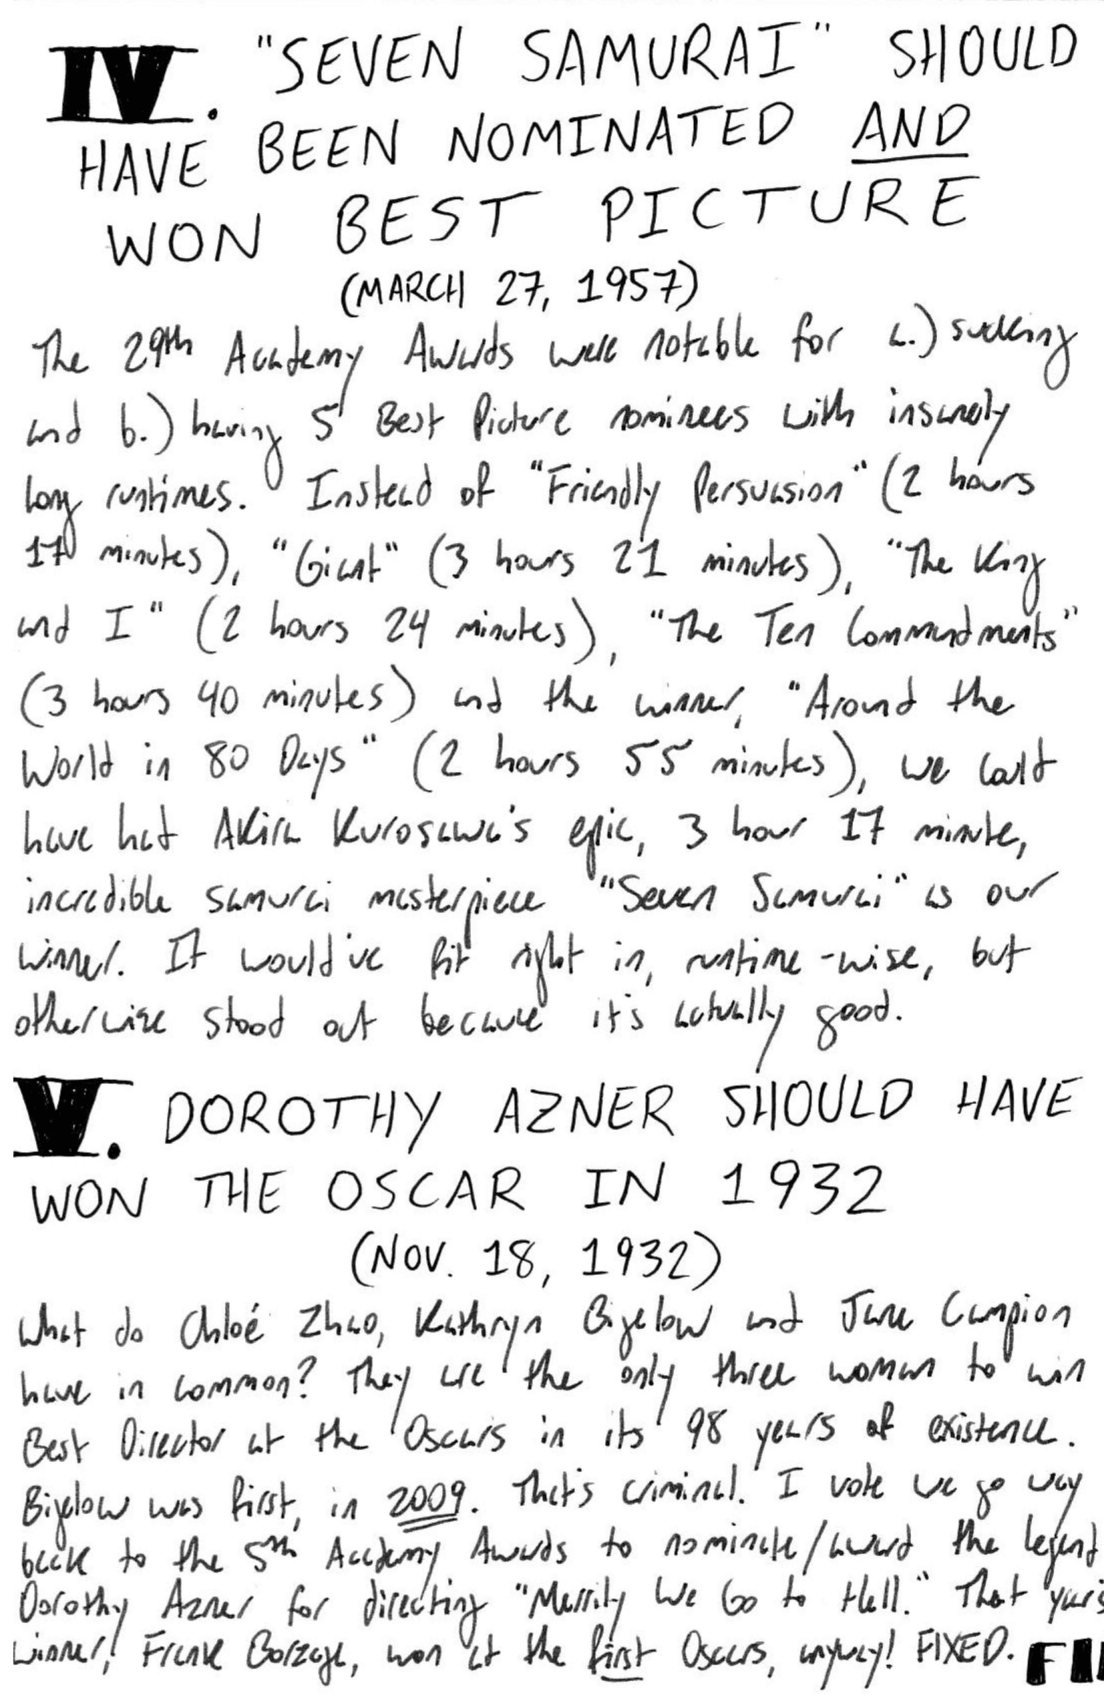 IV. "SEVEN SAMURAI" SHOULD
HAVE BEEN NOMINATED AND
WON BEST PICTURE
(MARCH 27, 1957)
The 29th Academy Awards were notable for a.) sucking
and b.) having 5 Best Picture nominees with insanely
long runtimes. Instead of "Friendly Persuasion" (2 hours
17 minutes), "Giant" (3 hours 21 minutes), "The King
and I" (2 hours 24 minutes), "The Ten Commandments"
(3 hours 40 minutes) and the winner, "Around the
World in 80 Days" (2 hours 55 minutes), we could
have had Akira Kurosawa's epic, 3 hour 17 minute,
incredible samurai masterpiece "Seven Samurai" as our
winner. It would've fit right in, runtime-wise, but
otherwise stood out because it's actually good.
V. DOROTHY AZNER SHOULD HAVE
WON THE OSCAR IN 1932
(NOV. 18, 1932)
What do Chloé Zhao, Kathryn Bigelow and Jane Campion
have in common? They are the only three women to win
Best Director at the Oscars in its 98 years of existence.
Bigelow was first, in 2009. That's criminal. I vote we go way
back to the 5th Academy Awards to nominate/award the legend
Dorothy Azner for directing "Merrily We Go to Hell." That year's
winner, Frank Borzage, won at the first Oscars, anyway! FIXED.